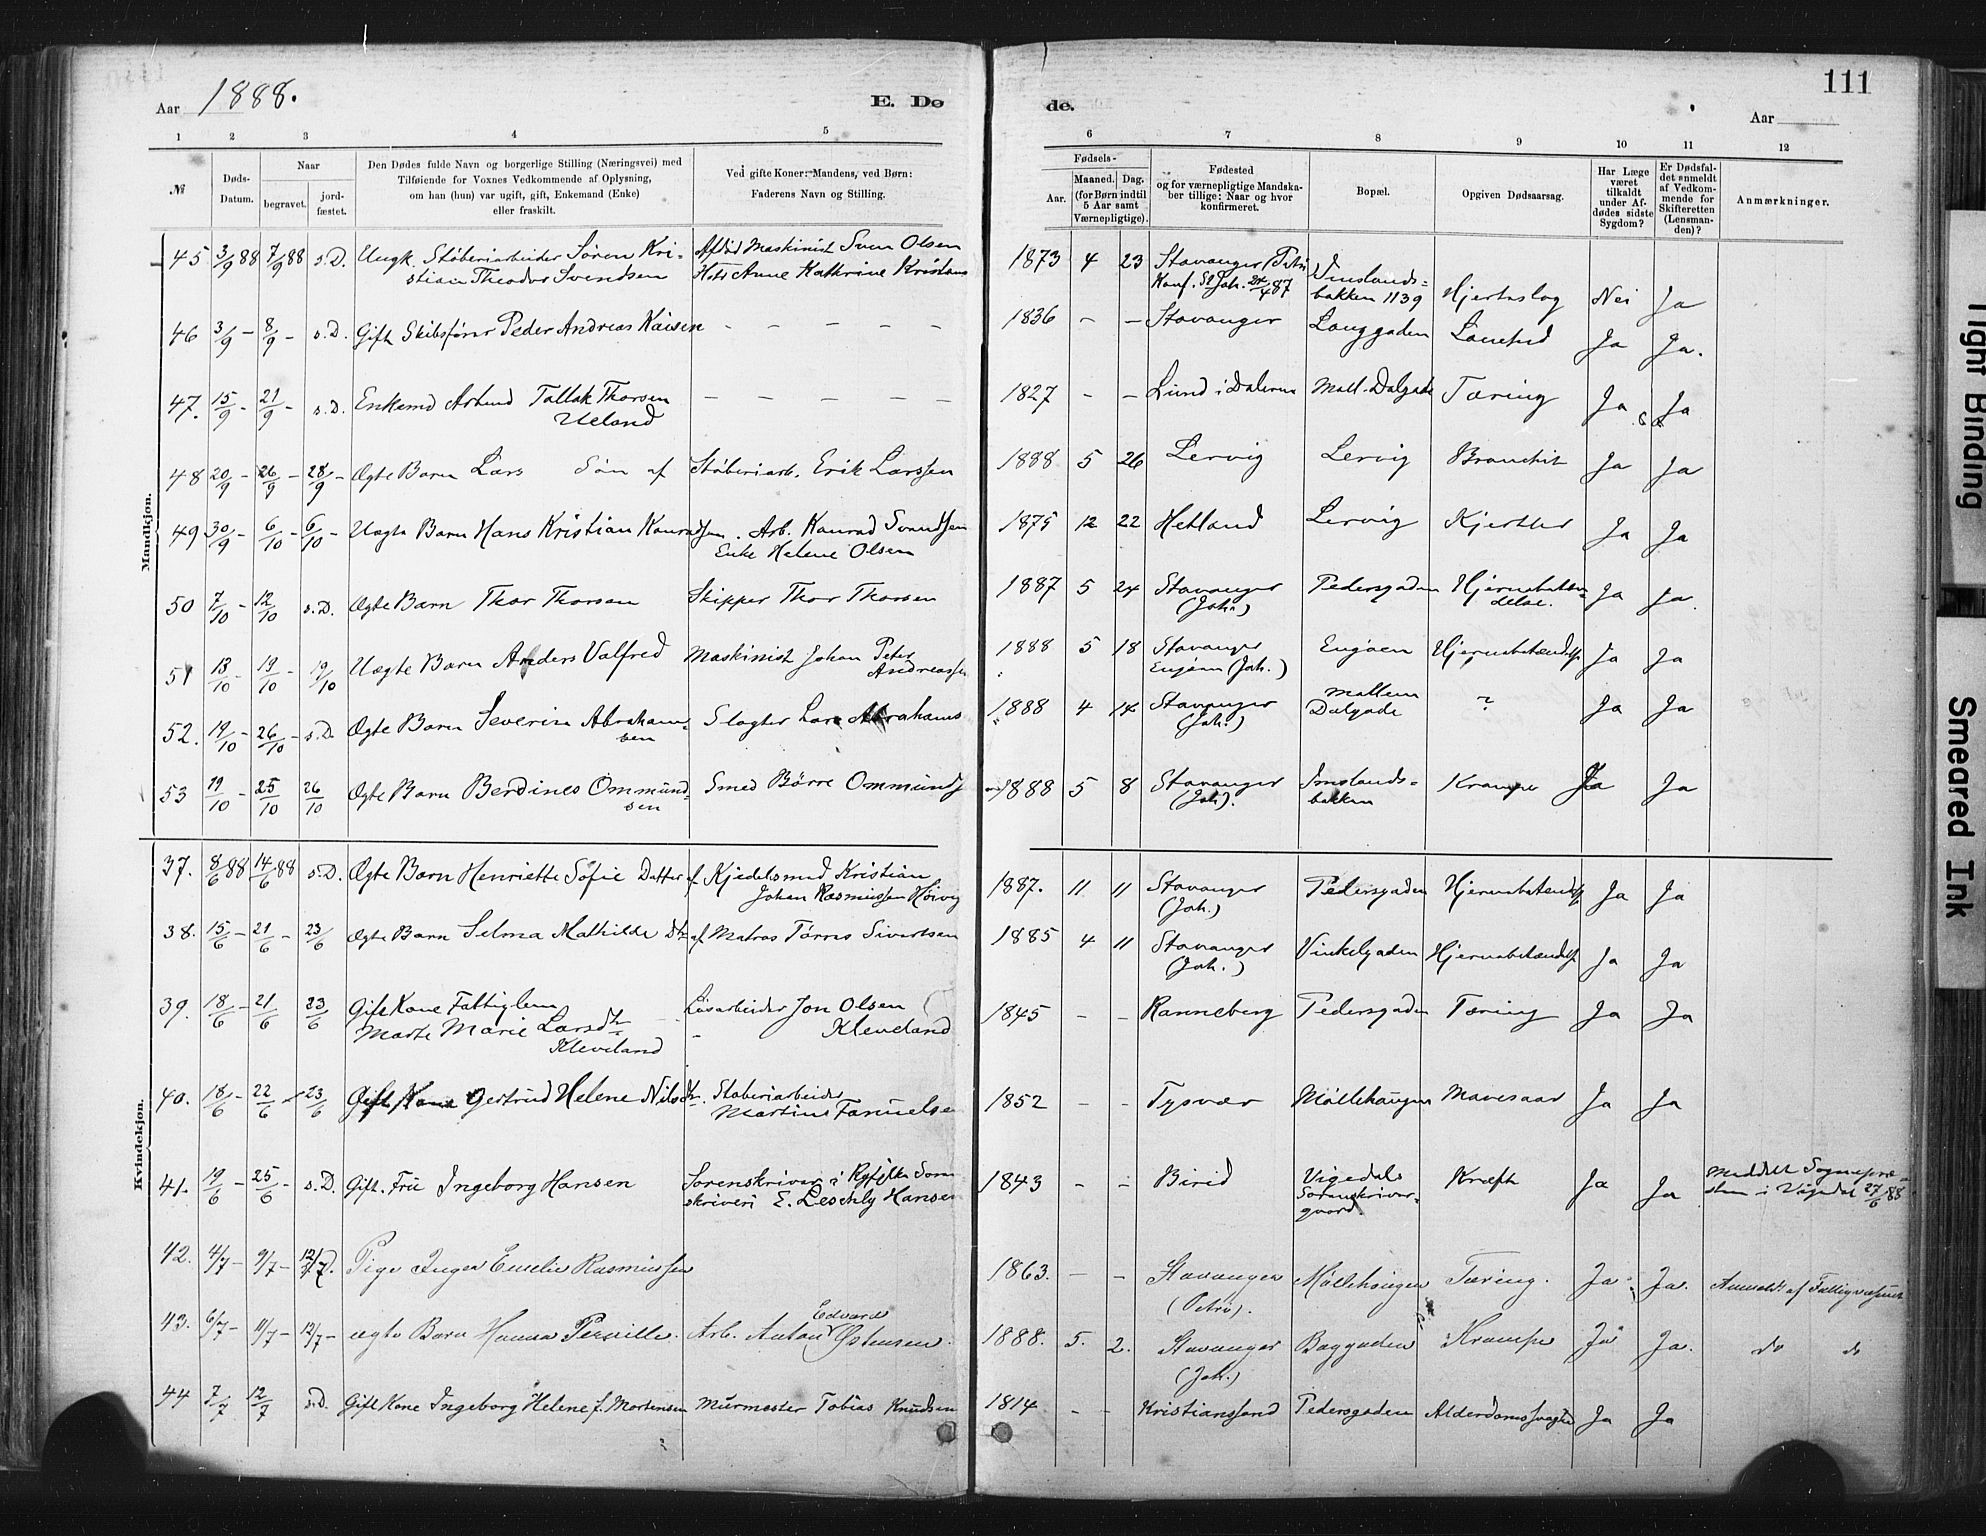 Aar 1888.
E. Dø
de.
Aar
111
1 2 3 4 5 6 7 8 9 10 11 12
№
Døds-
Datum.
Naar
begravet.
jord-
fæstet.
Den Dødes fulde Navn og borgerlige Stilling (Næringsvei) med
Tilføiende for Voxnes Vedkommende af Oplysning,
om han (hun) var ugift, gift, Enkemand (Enke)
eller fraskilt.
Ved gifte Koner: Mandens, ved Børn:
Faderens Navn og Stilling.
Fødsels-
Aar.
Maaned.
Dag.
(for Børn indtil
5 Aar samt
Værnepligtige).
Fødested
og for værnepligtige Mandska-
ber tillige: Naar og hvor
konfirmeret.
Bopæl.
Opgiven Dødsaarsag.
Har Læge
været
tilkaldt
under Af-
dødes sidste
Sygdom?
Er Dødsfal-
det anmeldt
af Vedkom-
mende for
Skifteretten
(Lensman-
den)?
Anmærkninger.
Mandkjøn.
45 3/9 88 7/9 88 s.D. Ungk. Støberiarbeider Søren Kri- Afdød Maskinist Sven Olsen 1873 4 23 Stavanger Petri
stian Theodor Svendsen Hans Anne Kathrine
Konf. St Joh. 24/4 87 Imslands-
bakken 1139 Hjerteslag Nei Ja
46 3/9 - 8/9 - s.D. Gift Skibsfører Peder Andreas Kaisen - - - - - 1836 - - Stavanger Langgaden Ja Ja.
47. 15/9 - 21/9 - s.D. Enkemd Arbmd Tallak Thorsen - - - - - 1827 - - Lund i Dalerne Mall. Dalgade Tæring Ja Ja
Ueland
48 20/9 - 26/9 - 28/9 - Ægte Barn Lars Søn af Støberiarb. Erik Larssen 1888 5 26 Lervig Lervig Bronchit Ja Ja
49 30/9 - 6/10 - 6/10 - Uægte Barn Hans Kristian Konradsen. Arb. Konrad Svendsen 1875 12 22 Hetland Lervig Ja Ja
Enke Helene Olsen
50 7/10 - 12/10 s.D. Ægte Barn Thor Thorsen Skipper Thor Thorsen 1887 5 24 Stavanger Pedersgaden Hjernebetæn- Ja Ja
(Joh.) delse.
51 13/10 - 19/10 - 19/10 Uægte Barn Anders Valfred Maskinist Johan Peter 1888 5 18 Stavanger Engøen Hjernebetændelse Ja Ja
Andreassen Engøen (Joh.)
52. 19/10 - 26/10 - s.D Ægte Barn Severin Abraham- Slagter Lars Abrahams 1888 4 14 Stavanger Mellem ? Ja Ja
sen (Joh.) Dalgade
53 19/10 - 25/10 26/10 Ægte Barn Berdines Ommund- Smed Børre Ommunds 1888 5 8 Stavanger Imslands- Krampe Ja Ja
sen (Joh). bakken
Kvindekjøn.
37. 8/6 88 14/6 88 s.D. Ægte Barn Henriette Sofie Datter af Kjedelsmed Kristian 1887. 11 11 Stavanger Pedersgaden Hjernebetændelse Ja Ja
Johan Rasmussen Høivig (Joh.)
38. 15/6 - 21/6 - 23/6 Ægte Barn Selma Mathilde Dtr af Matros Tørres Sivertsen 1885 4 11 Stavanger Vinkelgaden Hjernebetændelse Ja Ja
(Joh.)
39. 18/6 - 21/6 23/6 Gift Kone Fattiglem Løsarbeider Jon Olsen 1845 - - Ranneberg Pedersgaden Tæring Ja Ja
Marte Marie Larsdtr - Kleveland
Kleveland
40. 18/6 - 22/6 - 23/6 Gift Kone Gertrud Helene Nilsdtr. Støberiarbeider 1852 - - Tysvær Møllehaugen Mavesaar Ja Ja
Martin Fanuelsen
41. 19/6 - 25/6 - s.D. Gift. Fru Ingeborg Hansen Sorenskriver i Ryfylke Soren- 1843 - - Birid Vigedals Kræft Ja Ja Meddelt Sognepræ-
skriveri E. Leschly Hansen Sorenskriver- sten i Vigedal 27/6 88
gaard
42. 4/7 - 9/7 - 12/7 s.D. Pige Inger Emelie Rasmussen 1863. - - Stavanger Møllehaugen Tæring. Ja Ja. Anmeldt af Fattigvæsenet
(Petri).
43. 6/7 - 11/7 - 12/7 - ægte Barn Hanna Pernille. Arb. Anton Edvard Østensen. 1888. 5. 2. Stavanger Baggaden Krampe Ja Ja. do do
(Joh.)
44 7/7 12/7 s.D. Gift Kone Ingeborg Helene f. Mortensen Murmester Tobias Knudsen 1814 - - Kristianssand Pedersgaden Alderdomssvaghed Ja Ja
Tight Binding
Smeared Ink